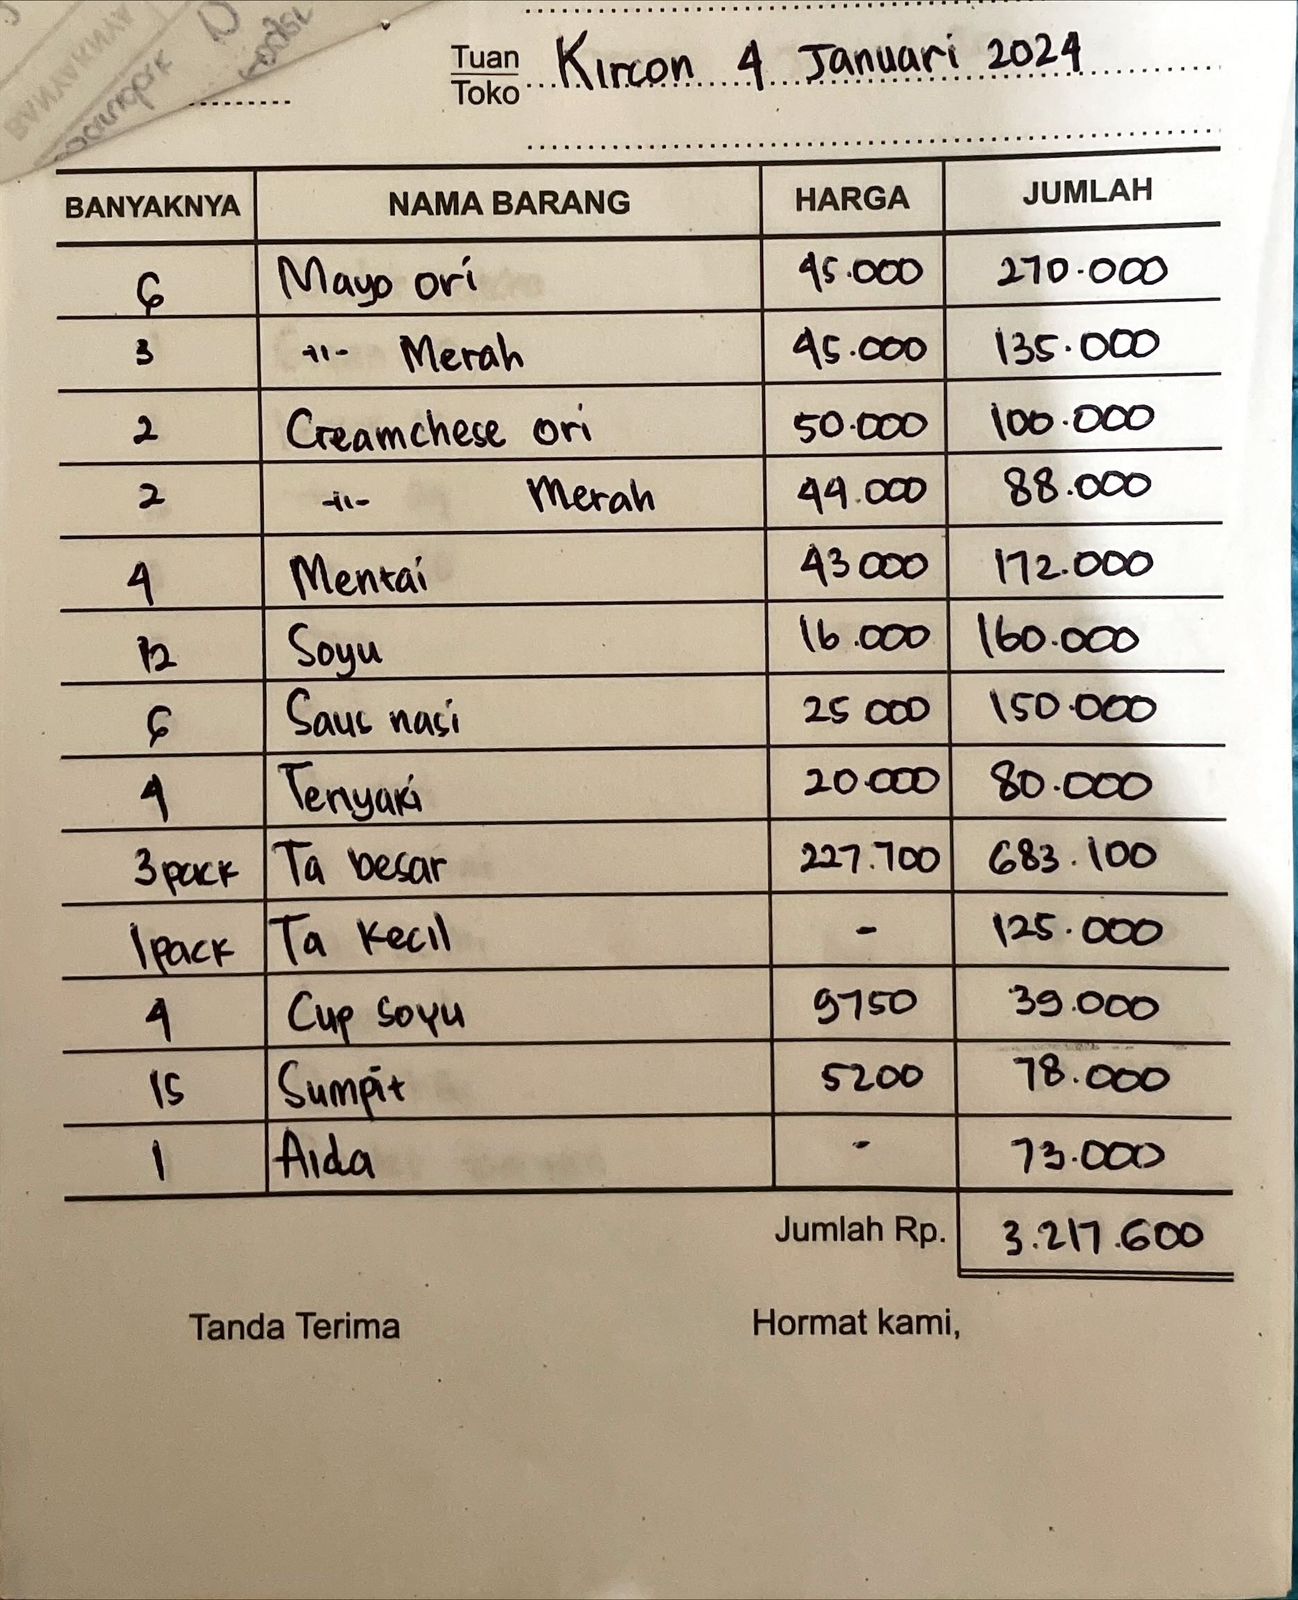 Tuan
Toko
Kircon 4 Januari 2024
BANYAKNYA NAMA BARANG HARGA JUMLAH
6 Mayo ori 45.000 270.000
3 -11- Merah 45.000 135.000
2 Creamchese ori 50.000 100.000
2 -11- Merah 44.000 88.000
4 Mentai 43 000 172.000
12 Soyu 16.000 160.000
6 Saus nasi 25 000 150.000
4 Teriyaki 20.000 80.000
3 pack Ta besar 227.700 683.100
1 pack Ta kecil - 125.000
4 Cup soyu 9750 39.000
15 Sumpit 5200 78.000
1 Aida - 73.000
Jumlah Rp. 3.217.600
Tanda Terima Hormat kami,